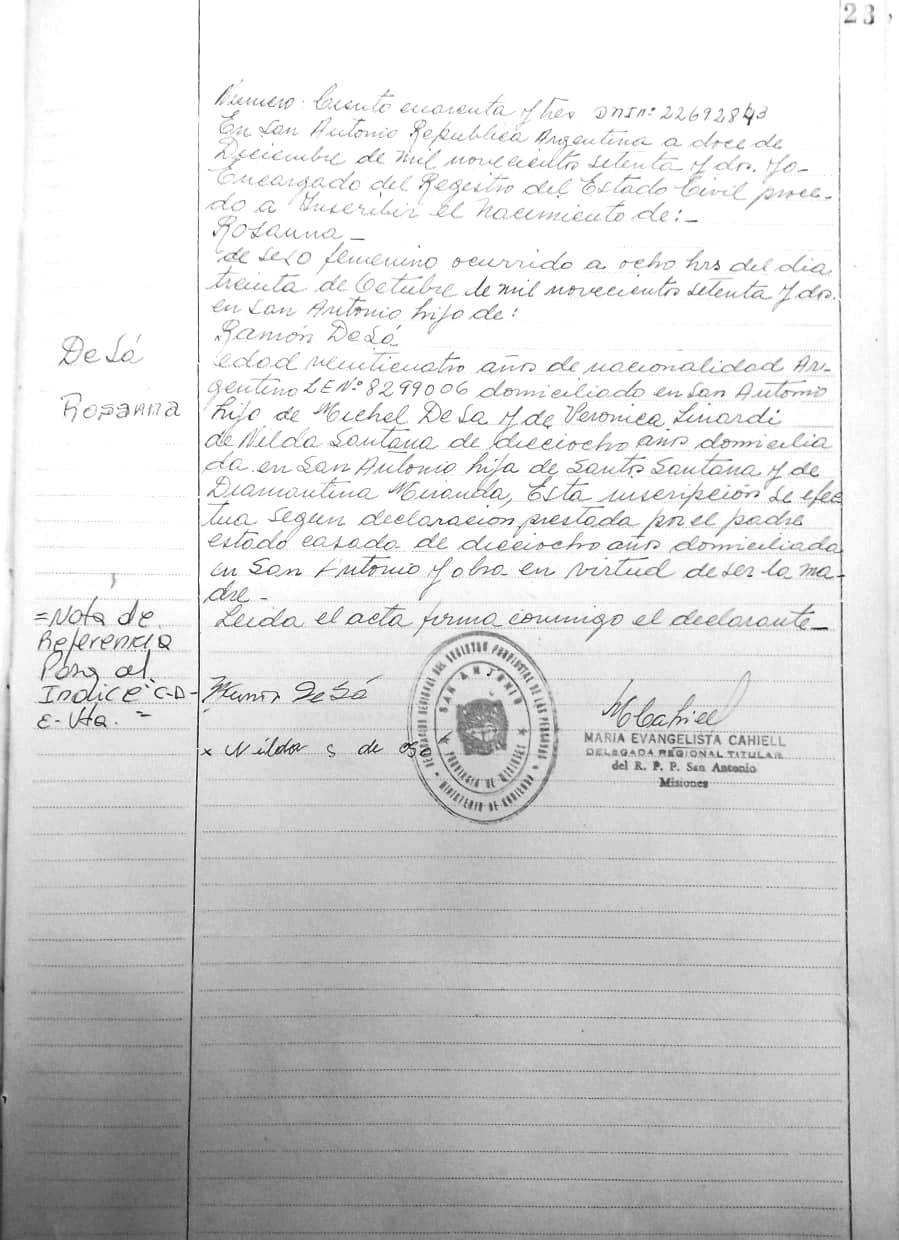 23
Número: Ciento cuarenta y tres DNI Nº 22692843
En San Antonio Republica Argentina a doce de
Diciembre de mil novecientos setenta y dos. Yo-
Encargado del Registro del Estado Civil proce-
do a Inscribir el Nacimiento de:-
Rosanna-
de sexo femenino ocurrido a ocho hrs del dia
treinta de Octubre de mil novecientos setenta y dos.
en San Antonio hijo de:
Ramón De Sá
edad veinticuatro años de nacionalidad Ar-
gentino LE Nº 8299006 domiciliado en San Antonio
hijo de Michel De Sa y de Veronica Linardi
de Nilda Santana de dieciocho años domicilia
da en San Antonio hija de Santos Santana y de
Diamantina Miranda, Esta inscripción se efec
tua segun declaracion prestada por el padre
estado casada de dieciocho años domiciliada
en San Antonio y obra en virtud de ser la ma-
dre-
Leida el acta firma conmigo el declarante-
De Sá
Rosanna
=Nota de
Referencia
Para el
Indice C-D-
E- Vta. =
De Sá
x Nilda S de
SAN ANTONIO
PROVINCIA DE MISIONES
MINISTERIO DE GOBIERNO
DELEGACION REGIONAL DEL REGISTRO PROVINCIAL DE LAS PERSONAS
MCahiell
MARIA EVANGELISTA CAHIELL
DELEGADA REGIONAL TITULAR
del R. P. P. San Antonio
Misiones